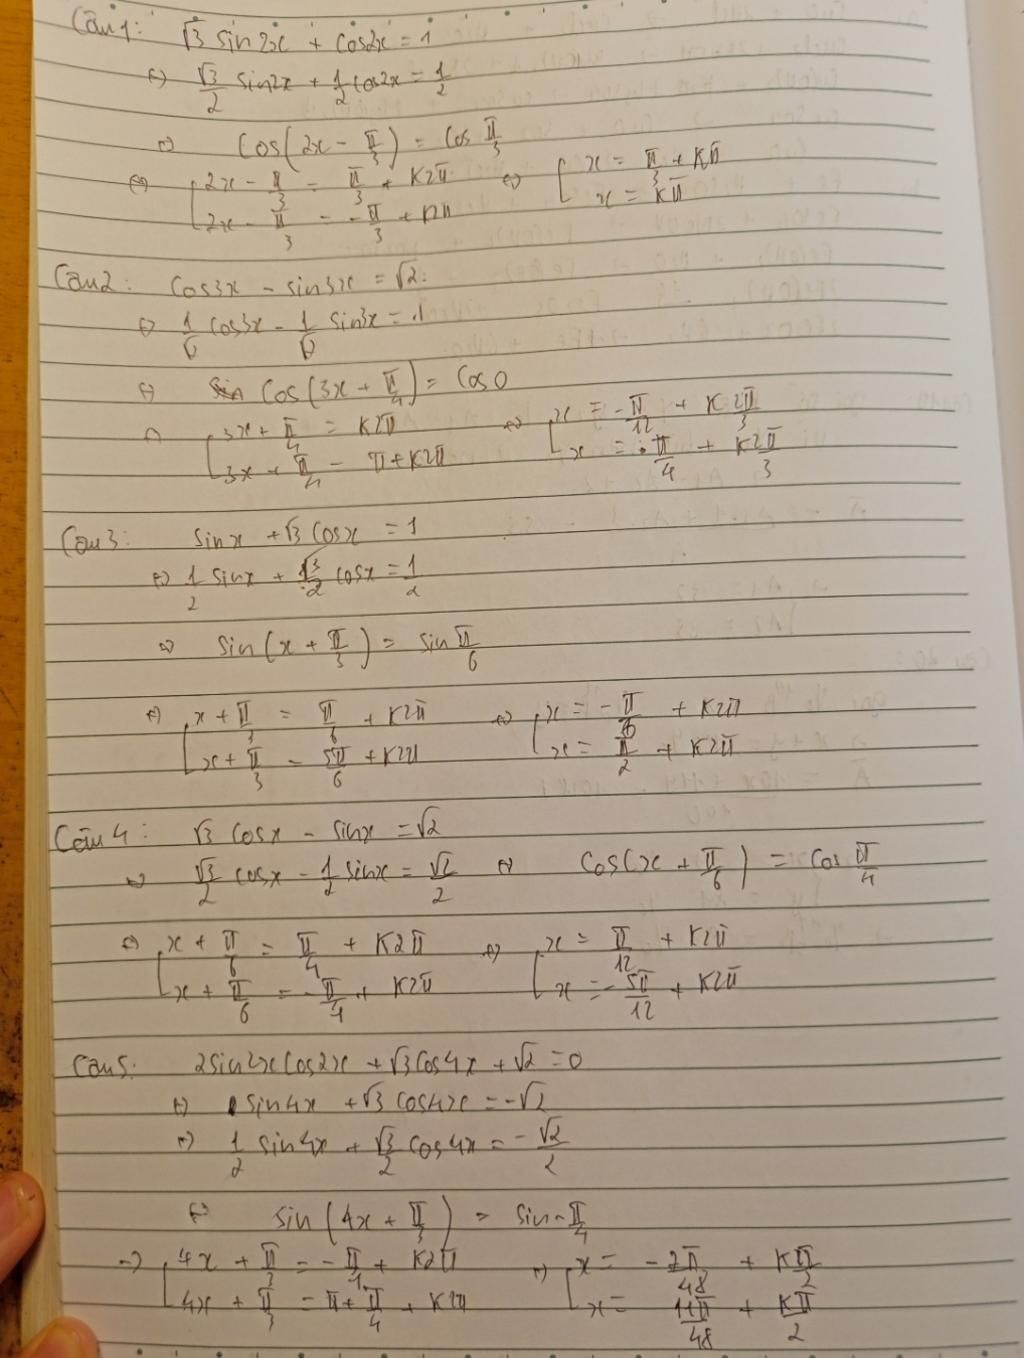 Câu 1: √3 sin2x + cos2x = 1
⇔ √3/2 sin2x + 1/2 cos2x = 1/2
⇔ cos(2x - π/3) = cos π/3
⇔ [ 2x - π/3 = π/3 + k2π ⇔ [ x = π/3 + kπ
2x - π/3 = -π/3 + k2π x = kπ
Câu 2: cos3x - sin3x = √2
⇔ 1/√2 cos3x - 1/√2 sin3x = 1
⇔ cos(3x + π/4) = cos0
⇔ [ 3x + π/4 = k2π ⇔ [ x = -π/12 + k2π/3
3x + π/4 = π + k2π x = π/4 + k2π/3
Câu 3: sinx + √3 cosx = 1
⇔ 1/2 sinx + √3/2 cosx = 1/2
⇔ sin(x + π/3) = sin π/6
⇔ [ x + π/3 = π/6 + k2π ⇔ [ x = -π/6 + k2π
x + π/3 = 5π/6 + k2π x = π/2 + k2π
Câu 4: √3 cosx - sinx = √2
⇔ √3/2 cosx - 1/2 sinx = √2/2 ⇔ cos(x + π/6) = cos π/4
⇔ [ x + π/6 = π/4 + k2π ⇔ [ x = π/12 + k2π
x + π/6 = -π/4 + k2π x = -5π/12 + k2π
Câu 5: 2sin2x cos2x + √3 cos4x + √2 = 0
⇔ sin4x + √3 cos4x = -√2
⇔ 1/2 sin4x + √3/2 cos4x = -√2/2
⇔ sin(4x + π/3) = sin -π/4
⇔ [ 4x + π/3 = -π/4 + k2π ⇔ [ x = -2π/48 + kπ/2
4x + π/3 = π + π/4 + k2π x = 11π/48 + kπ/2